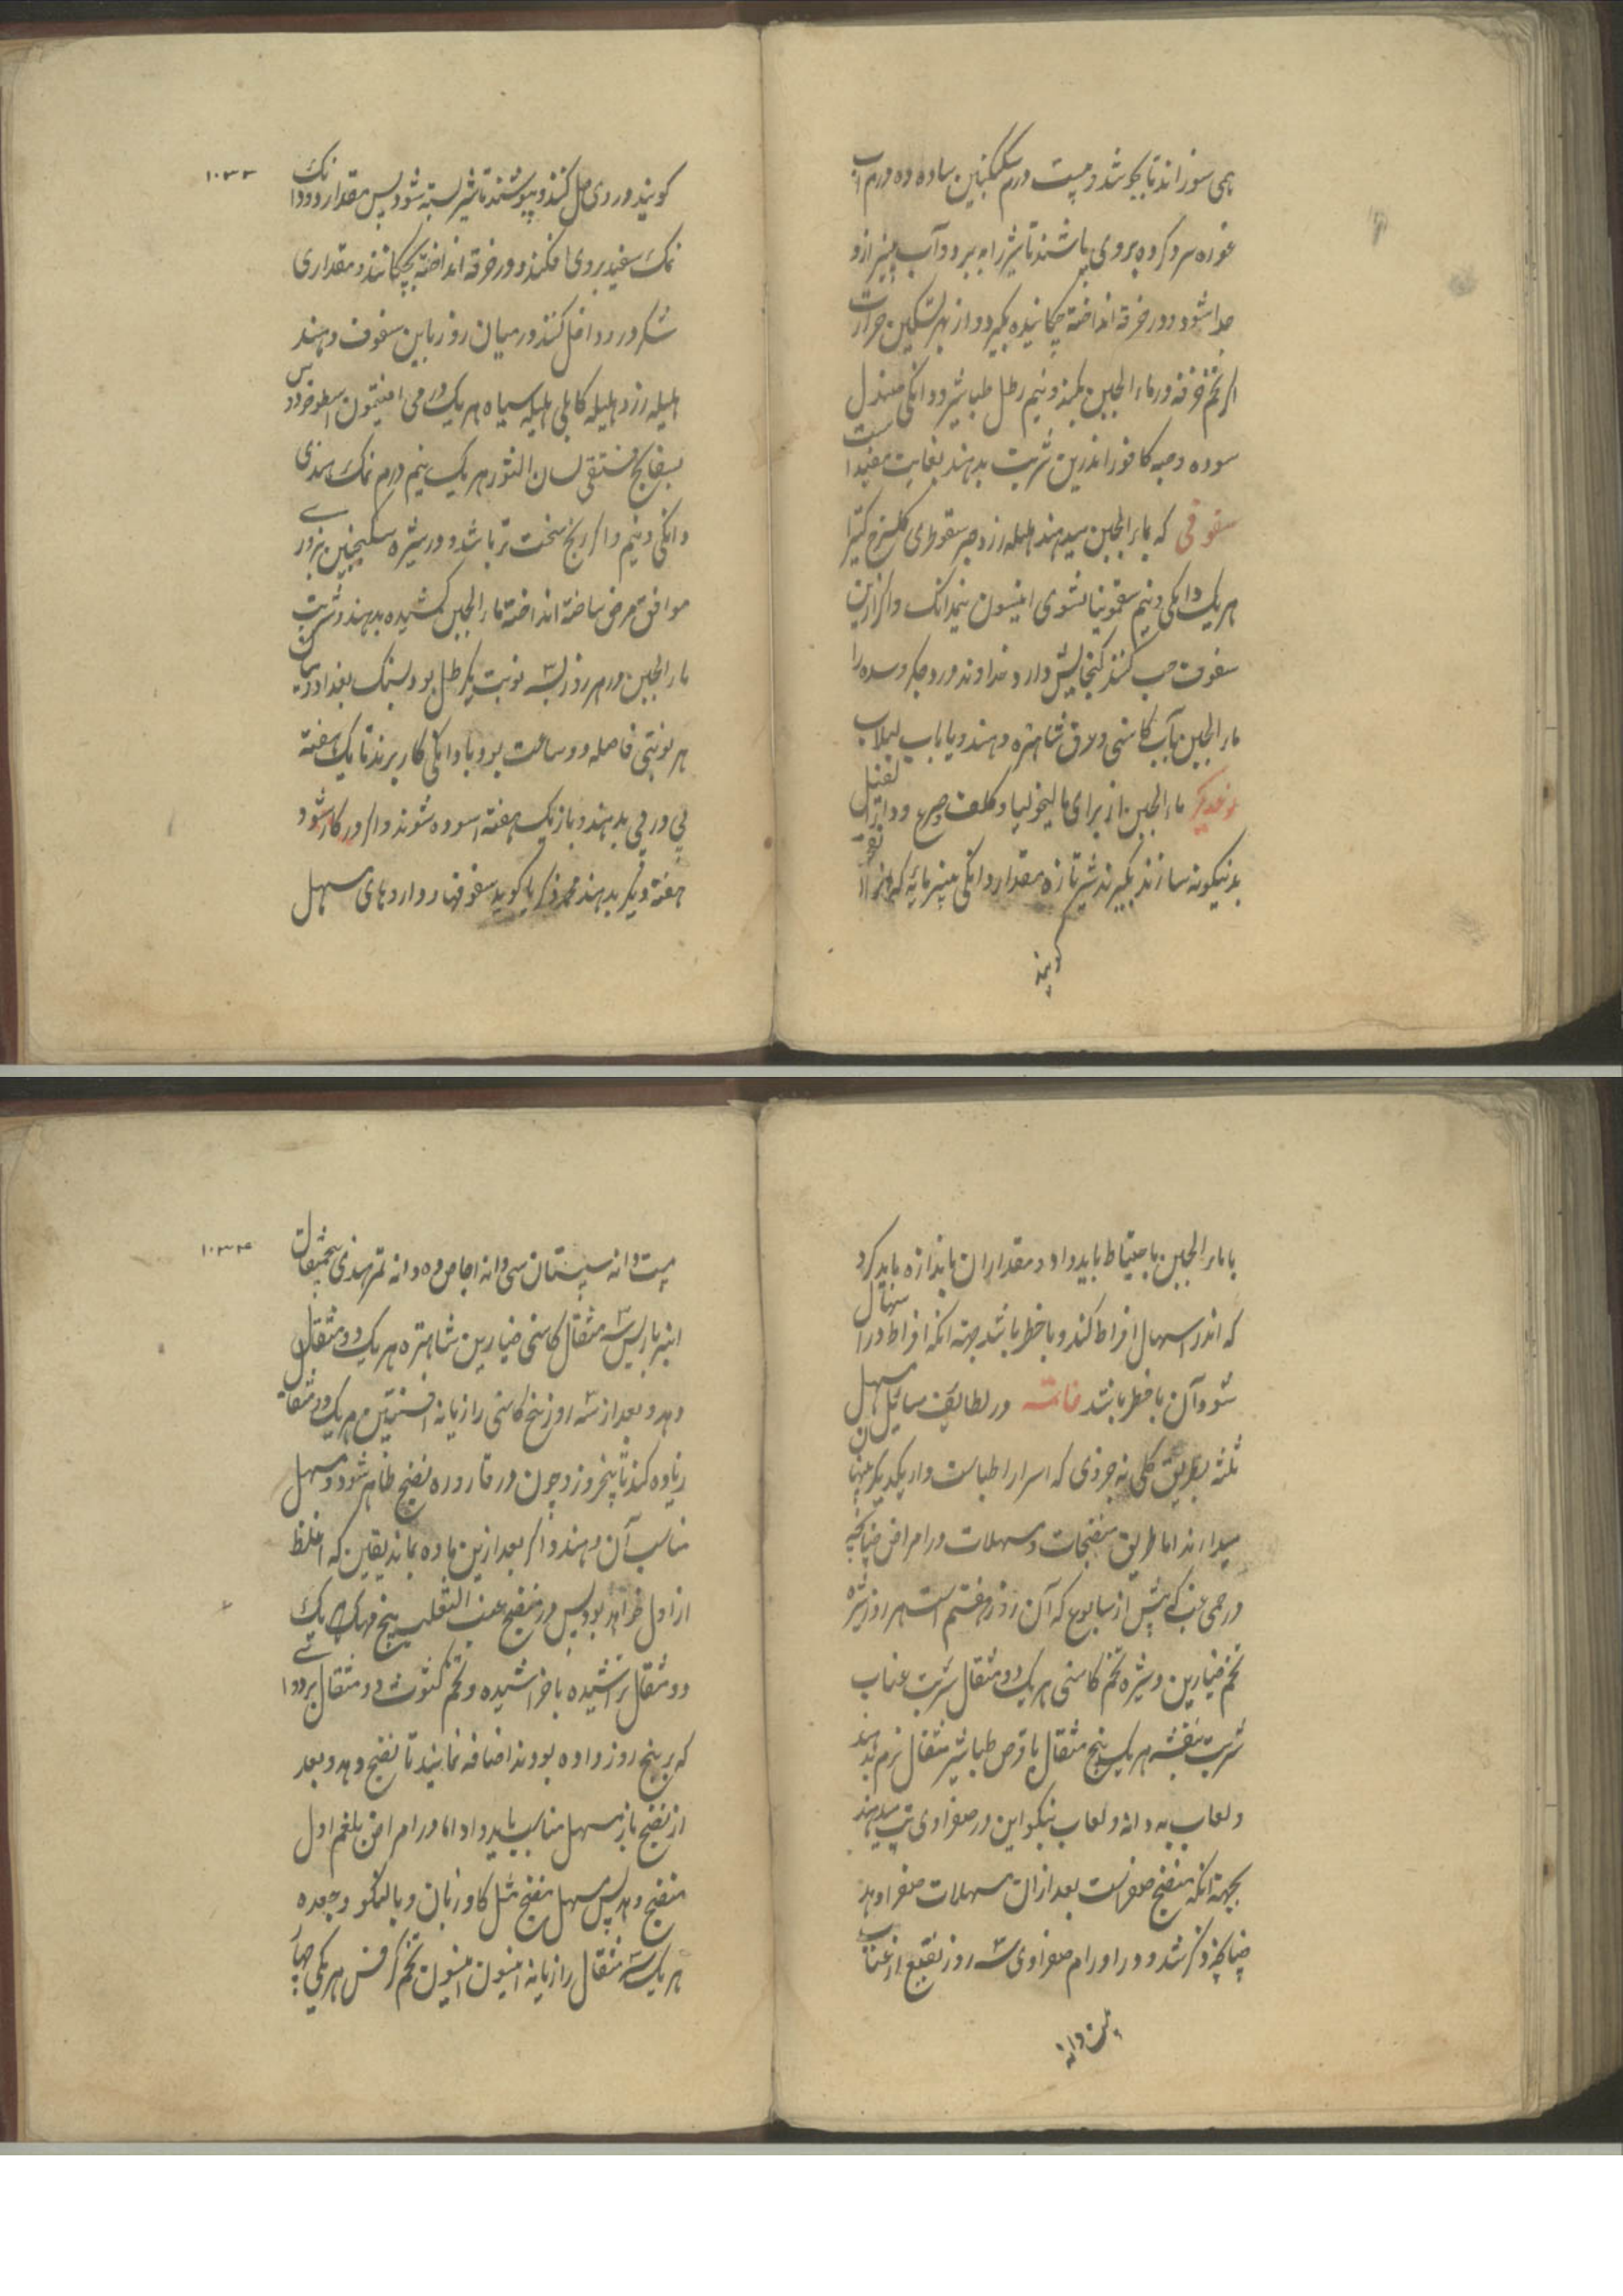 همی سوزاند تا بجوشد و بیست درم سکنجبین ساده ده درم آب
غوره سرد کرده بروی پاشند تا شیر را ببرد و آب پنیر ازو
جدا شود و در خرقه انداخته چکانیده بگیرد و از بهر تسکین حرارت
اگر تخم خرفه در ماء الجبن کنند و نیم رطل طباشیر و دانگی صندل
سوده و حبه کافور اندرین شربت بدهند بغایت مفید است
سفوفی که بماء الجبن میدهند هلیله زرد صبر سقوطری گلسرخ کتیرا
هر یک دانگی و نیم سقمونیا مشوی انیسون نیمدانگ و اگر ازین
سفوف حب کنند گنجایش دارد و خداوند درد جگر و سده را
ماء الجبن بآب کاسنی و عرق شاهتره دهند و یا بآب لبلاب
نوعدیگر ماء الجبن از برای مالیخولیا و کلف و جرب و داء الفیل
بدینگونه سازند بگیرند شیر تازه مقدار دانگی پنیرمایه که انرا انفحه
گویند
۱۰۳۳
گویند در وی حل کنند و بپوشند تا شیر بسته شود پس مقدار دو دانک
نمک سفید بروی افکنند و در خرقه انداخته بچکانند و مقداری
شکر در وی داخل کنند و در میان روز با این سفوف دهند
هلیله زرد هلیله کابلی هلیله سیاه هر یک درمی افتیمون اسطوخودوس
بسفایج فستقی لسان الثور هر یک نیم درم نمک هندی
دانگی و نیم و اگر رنج سخت تر باشد و در شیره سکنجبین بزوری
موافق مرض ساخته انداخته ماء الجبن کشیده بدهند و شربت
ماء الجبن در هر روز بسه نوبت یکرطل بود بسنگ بغداد و میان
هر نوبتی فاصله دو ساعت بود و با دانگی کار برند تا یک هفته
پی در پی بدهند و باز یک هفته اسوده شوند و اگر در کار شود
هفته دیگر بدهند محمد ذکریا گوید سفوفها و داروهای مسهل
با ماء الجبن باحتیاط باید داد و مقدار ان باندازه باید کرد
که اندر اسهال افراط کند و با خطر باشد بجهة انکه افراط در اسهال
شود آن با خطر باشد خاتمه در لطایف مسایل مسهل
ثلثه بطریق کلی نه جزوی که اسرار اطباست و از یکدیگر پنهان
میدارند اما طریق منضجات و مسهلات در امراض چنانچه
در حمی غب که پیش از سابوع که آن روز هفتم است هر روز شیره
تخم خیارین و شیره تخم کاسنی هر یک دو مثقال شربت عناب
شربت بنفشه هر یک پنج مثقال با قرص طباشیر مثقال نرم بدهند
و لعاب به دانه و لعاب نیکو این در صفراوی تب میدهند
بجهة انکه منضج صفراست بعد از ان مسهلات صفرا دهد
چنانچه ذکر شد و در اورام صفراوی سه روز نقیع از عناب
بیست دانه
۱۰۳۴
بیست دانه سپستان سی دانه اجاص ده دانه تمر هندی پنجمثقال
انبرباریس سه مثقال کاسنی خیارین شاهتره هر یک دو مثقال
دهد و بعد از سه روز بیخ کاسنی رازیانه افسنتین هر یک دو مثقال
زیاده کند تا پنجروز و چون در قاروره نضج ظاهر شود و مسهل
مناسب آن دهند و اگر بعد ازین ماده بماند یقین که اغلظ
از اول خواهد بود پس در منضج عنب الثعلب بیخ مهک هر یک
دو مثقال تراشیده یا خراشیده و تخم کشوث دو مثقال بر دوائی
که بر پنج روز داده بودند اضافه نمایند تا نضج دهد و بعد
از نضج باز مسهل مناسب باید داد اما در امراض بلغم اول
منضج دهد پس مسهل منضج مثل گاوزبان و بالنگو و جعده
هر یک سه مثقال رازیانه انیسون انیسون تخم کرفس هر یکی چهار